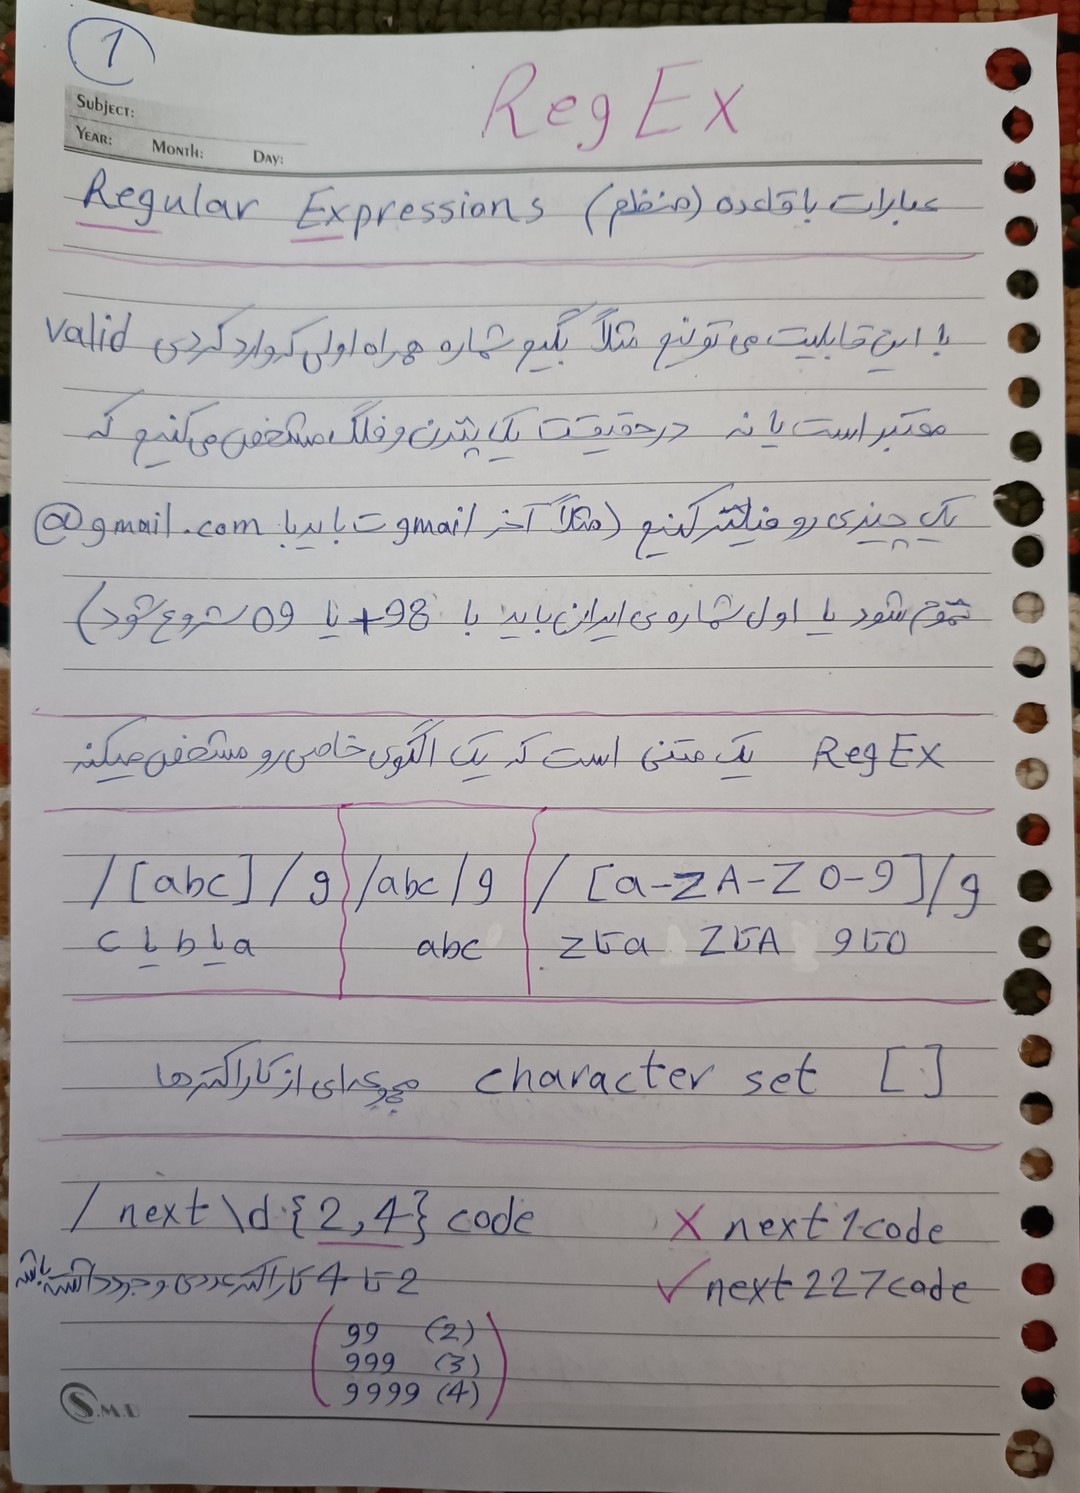 1
RegEx
SUBJECT:
YEAR: MONTH: DAY:
Regular Expressions عبارات با قاعده (منظم)
با این قابلیت می تونیم مثلاً بگیم شماره همراه اولی که وارد کردی valid
معتبر است یا نه در حقیقت یک پترن و فلگ مشخص می کنیم که
یک چیزی رو فیلتر کنیم (مثلاً آخر gmail ت باید با @gmail.com
تموم شود یا اول شماره ی ایران باید با +98 یا 09 شروع شود)
RegEx یک متنی است که یک الگوی خاصی رو مشخص میکنه
/[abc]/g /abc/g /[a-zA-Z0-9]/g
a یا b یا c abc a تا z A تا Z 0 تا 9
[] character set مجموعه ای از کاراکترها
/next\d{2,4}code X next1code
2 تا 4 کاراکتر عددی وجود داشته باشه ✓ next227code
99 (2)
999 (3)
9999 (4)
S.M.D